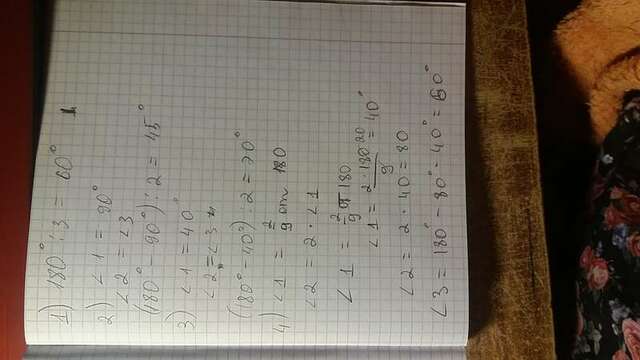 1) 180° : 3 = 60°
2) ∠1 = 90°
∠2 = ∠3
(180° - 90°) : 2 = 45°
3) ∠1 = 40°
∠2 = ∠3
(180° - 40°) : 2 = 70°
4) ∠1 = 2/9 от 180
∠2 = 2 · ∠1
∠1 = 2/9 от 180
∠1 = 2 · 180 20 / 9 = 40°
∠2 = 2 · 40 = 80
∠3 = 180° - 80° - 40° = 60°